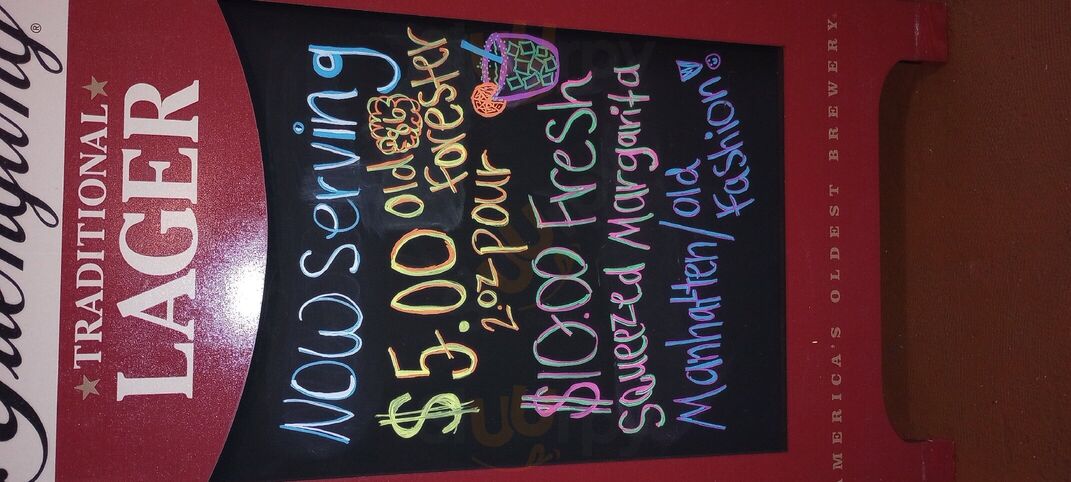 Yuengling®
TRADITIONAL
LAGER
Now Serving
$5.00 Old
Forester
2.oz pour
$10.00 Fresh
Squeezed Margarita
Manhatten/old
Fashion
AMERICA'S OLDEST BREWERY